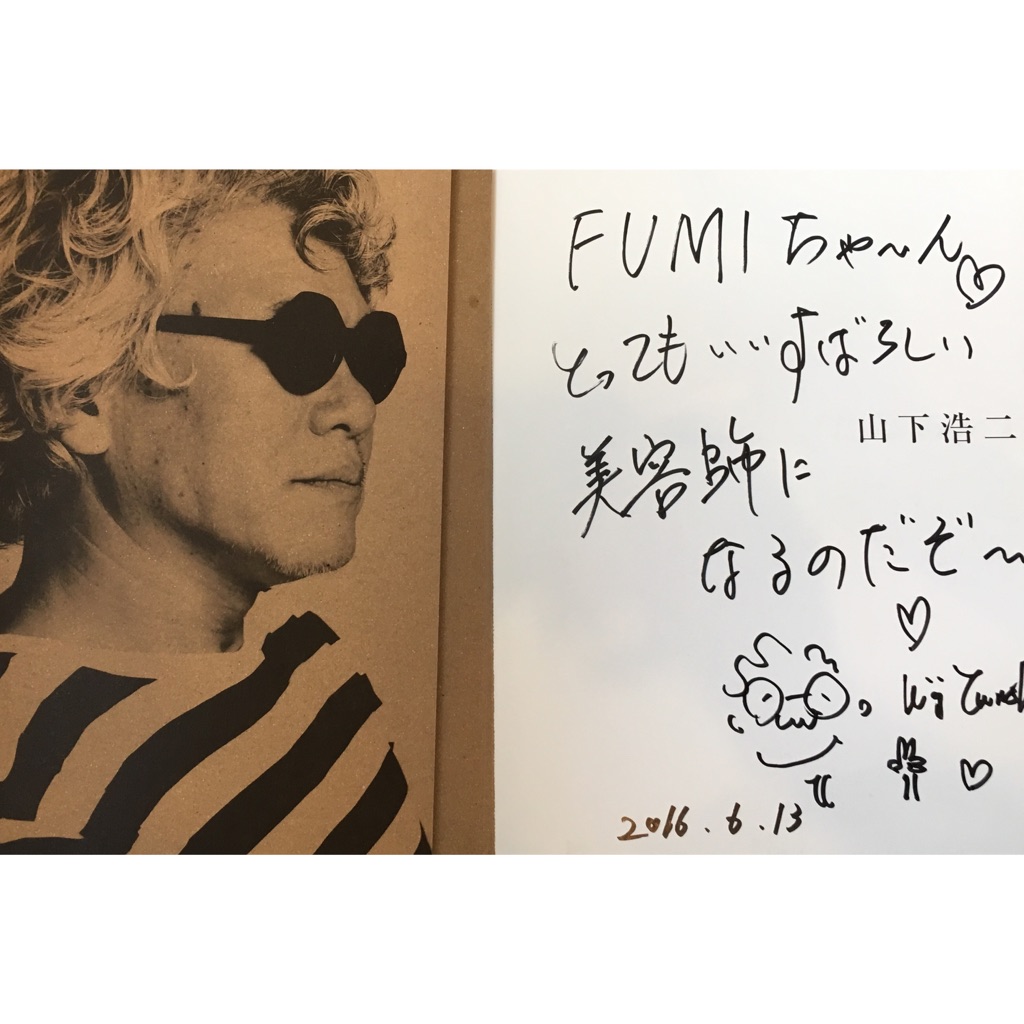 FUMIちゃ〜ん♡
とってもいいすばらしい
山下浩二
美容師に
なるのだぞ〜
♡
2016.6.13